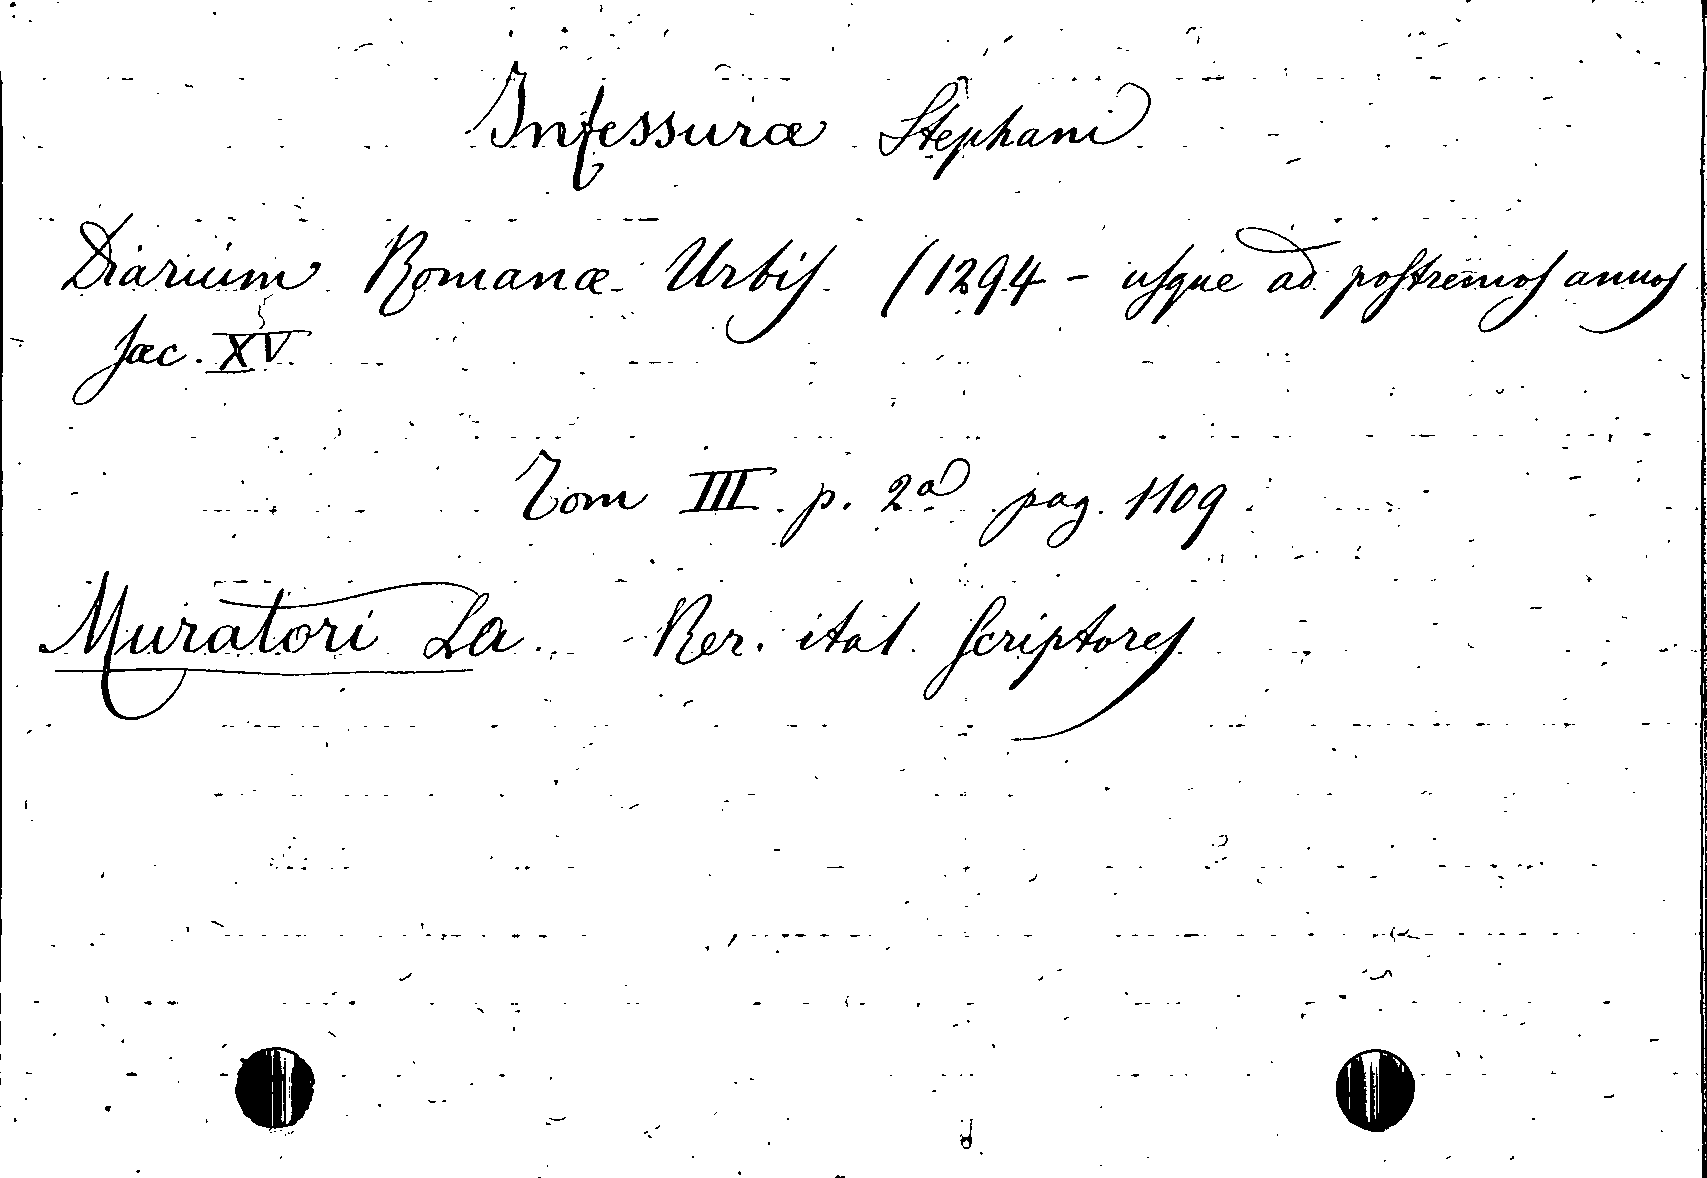 Infessuræ Stephani
Diarium Romanæ Urbis (1294 - usque ad postremos annos
sæc. XV
Tom III p. 2ª pag. 1109
Muratori La. Rer. ital. scriptores